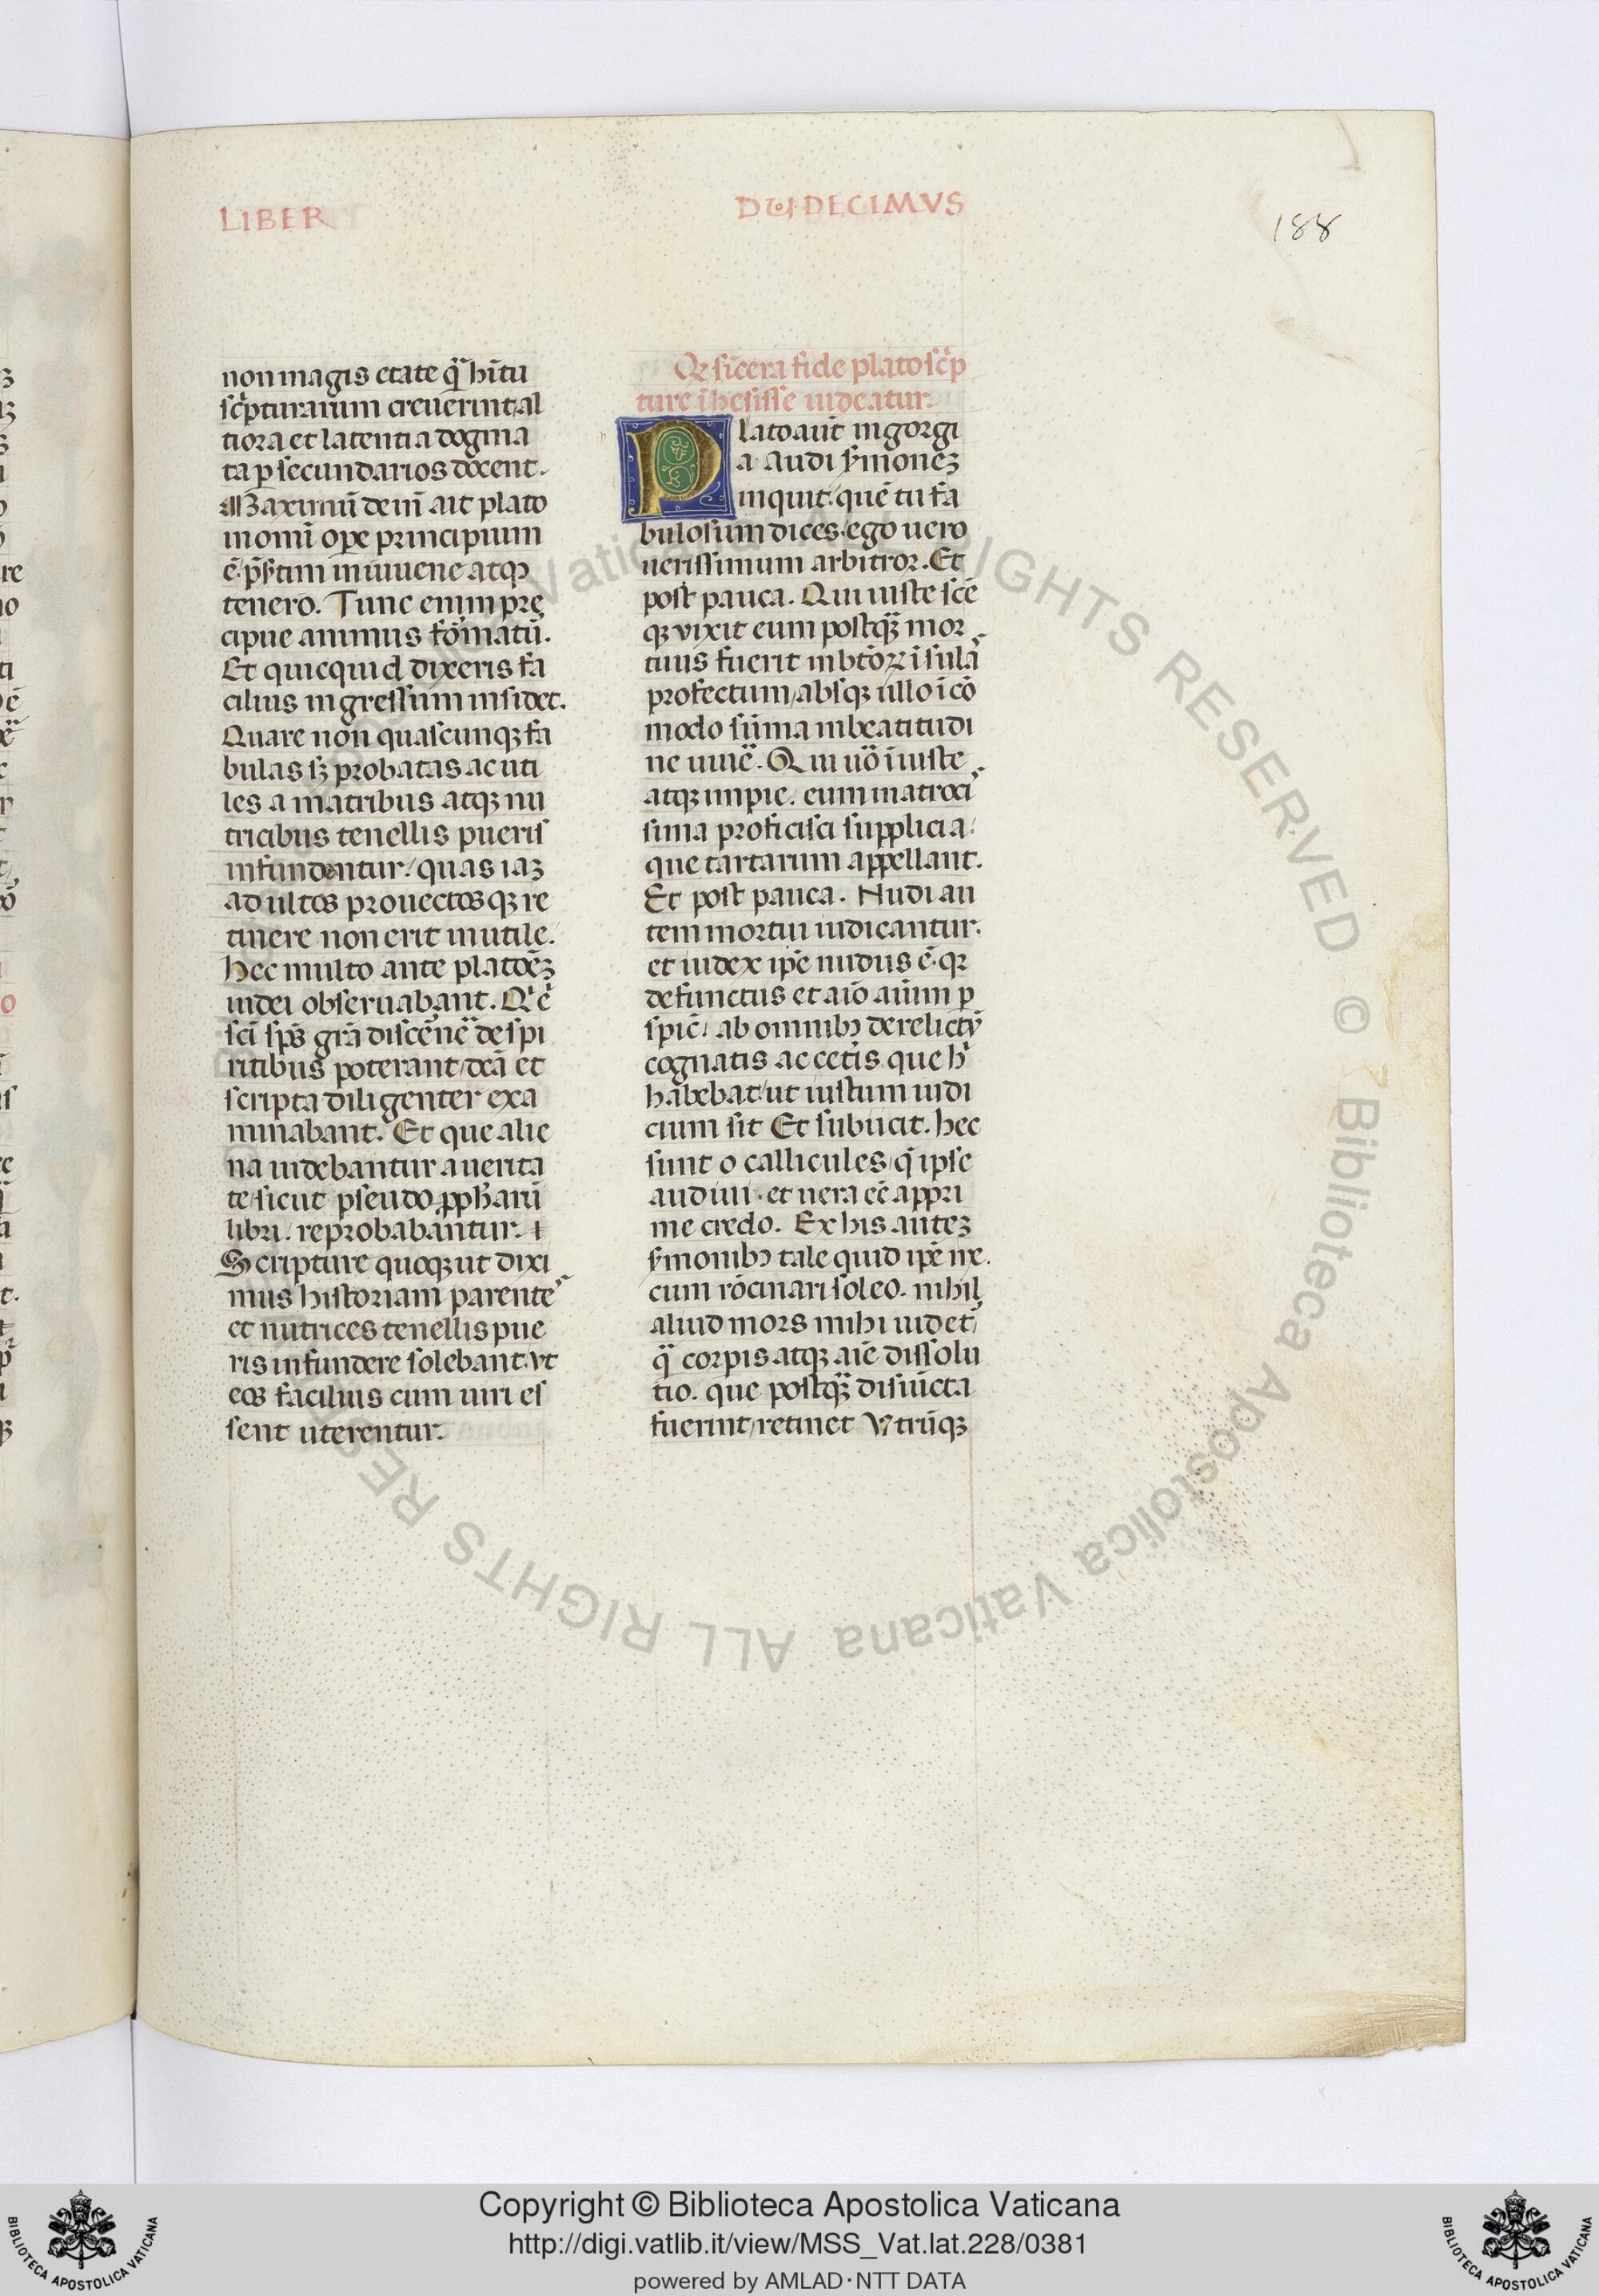 LIBER
DUODECIMVS
188
non magis etate q̃ hĩtu
scͥpturarum creuerint, al
tiora et latentia dogma
ta ꝑ secundarios docent.
Maximũ deniͫ ait plato
in omni oꝑe principium
ẽ. p̃sꝑtim in iuuene atqꝫ
tenero. Tunc enim pre
cipue animus formatũ.
Et quicquid dixeris fa
cilius ingressum insidet.
Quare non quascunqꝫ fa
bulas sꝫ probatas ac uti
les a matribus atqꝫ nu
tricibus tenellis pueris
infundentur, quas iaꝫ
adultos prouectosqꝫ re
tinere non erit inutile.
Hec multo ante platoẽꝫ
iudei obseruabant. Qͥ ẽ
sc̃i sp̃s gr̃a discẽnẽ de spi
ritibus poterant, dc̃a et
scripta diligenter exa
minabant. Et que alie
na uidebantur a uerita
te, sicut pseudo ꝓpħarũ
libri, reprobabantur. +
Scripture quoqꝫ ut dixi
mus historiam parente͂
et nutrices tenellis pue
ris infundere solebant, vt
eos facilius cum uiri es
sent uterentur.
Qꝫ sĩcera fide plato scͥp
ture ĩhesisse uideatur.
Plato aũt in gorgi
a. Audi ẜmoneꝫ
inquit, quẽ tu fa
bulosum dices, ego uero
uerissimum arbitror. Et
post pauca. Qui iuste scẽ
qꝫ vixit eum postqꝫ̃ mor
tuus fuerit in btõꝝ ĩsula͂
profectum, absqꝫ ullo ĩcõ
modo sũma in beatitudi
ne uiuẽ. Qui uõ ĩiuste
atqꝫ impie, eum in atroci͂
sima proficisci supplicia,
que tartarum appellant.
Et post pauca. Nudi au
tem mortui iudicantur.
et iudex ip̃e nudus ẽ. qꝛ
defunctus et aĩo aĩum ꝑ
spicẽ, ab omnibꝫ derelictꝰ
cognatis ac cetͥs que hͥ
habebat, ut iustum iudi
cium sit Et subiicit. hec
sunt o callicules, q̃ ipse
audiui. et uera eẽ appri
me credo. Ex his auteꝫ
ẜmonibꝫ tale quid ip̃e me
cum rõcinari soleo. nihil
aliud mors mihi uidet᷑,
q̃ corpis atqꝫ aĩe dissolu
tio. que postqꝫ̃ disiũcta
fuerint, retinet Vtrũqꝫ
Copyright © Biblioteca Apostolica Vaticana
http://digi.vatlib.it/view/MSS_Vat.lat.228/0381
powered by AMLAD·NTT DATA